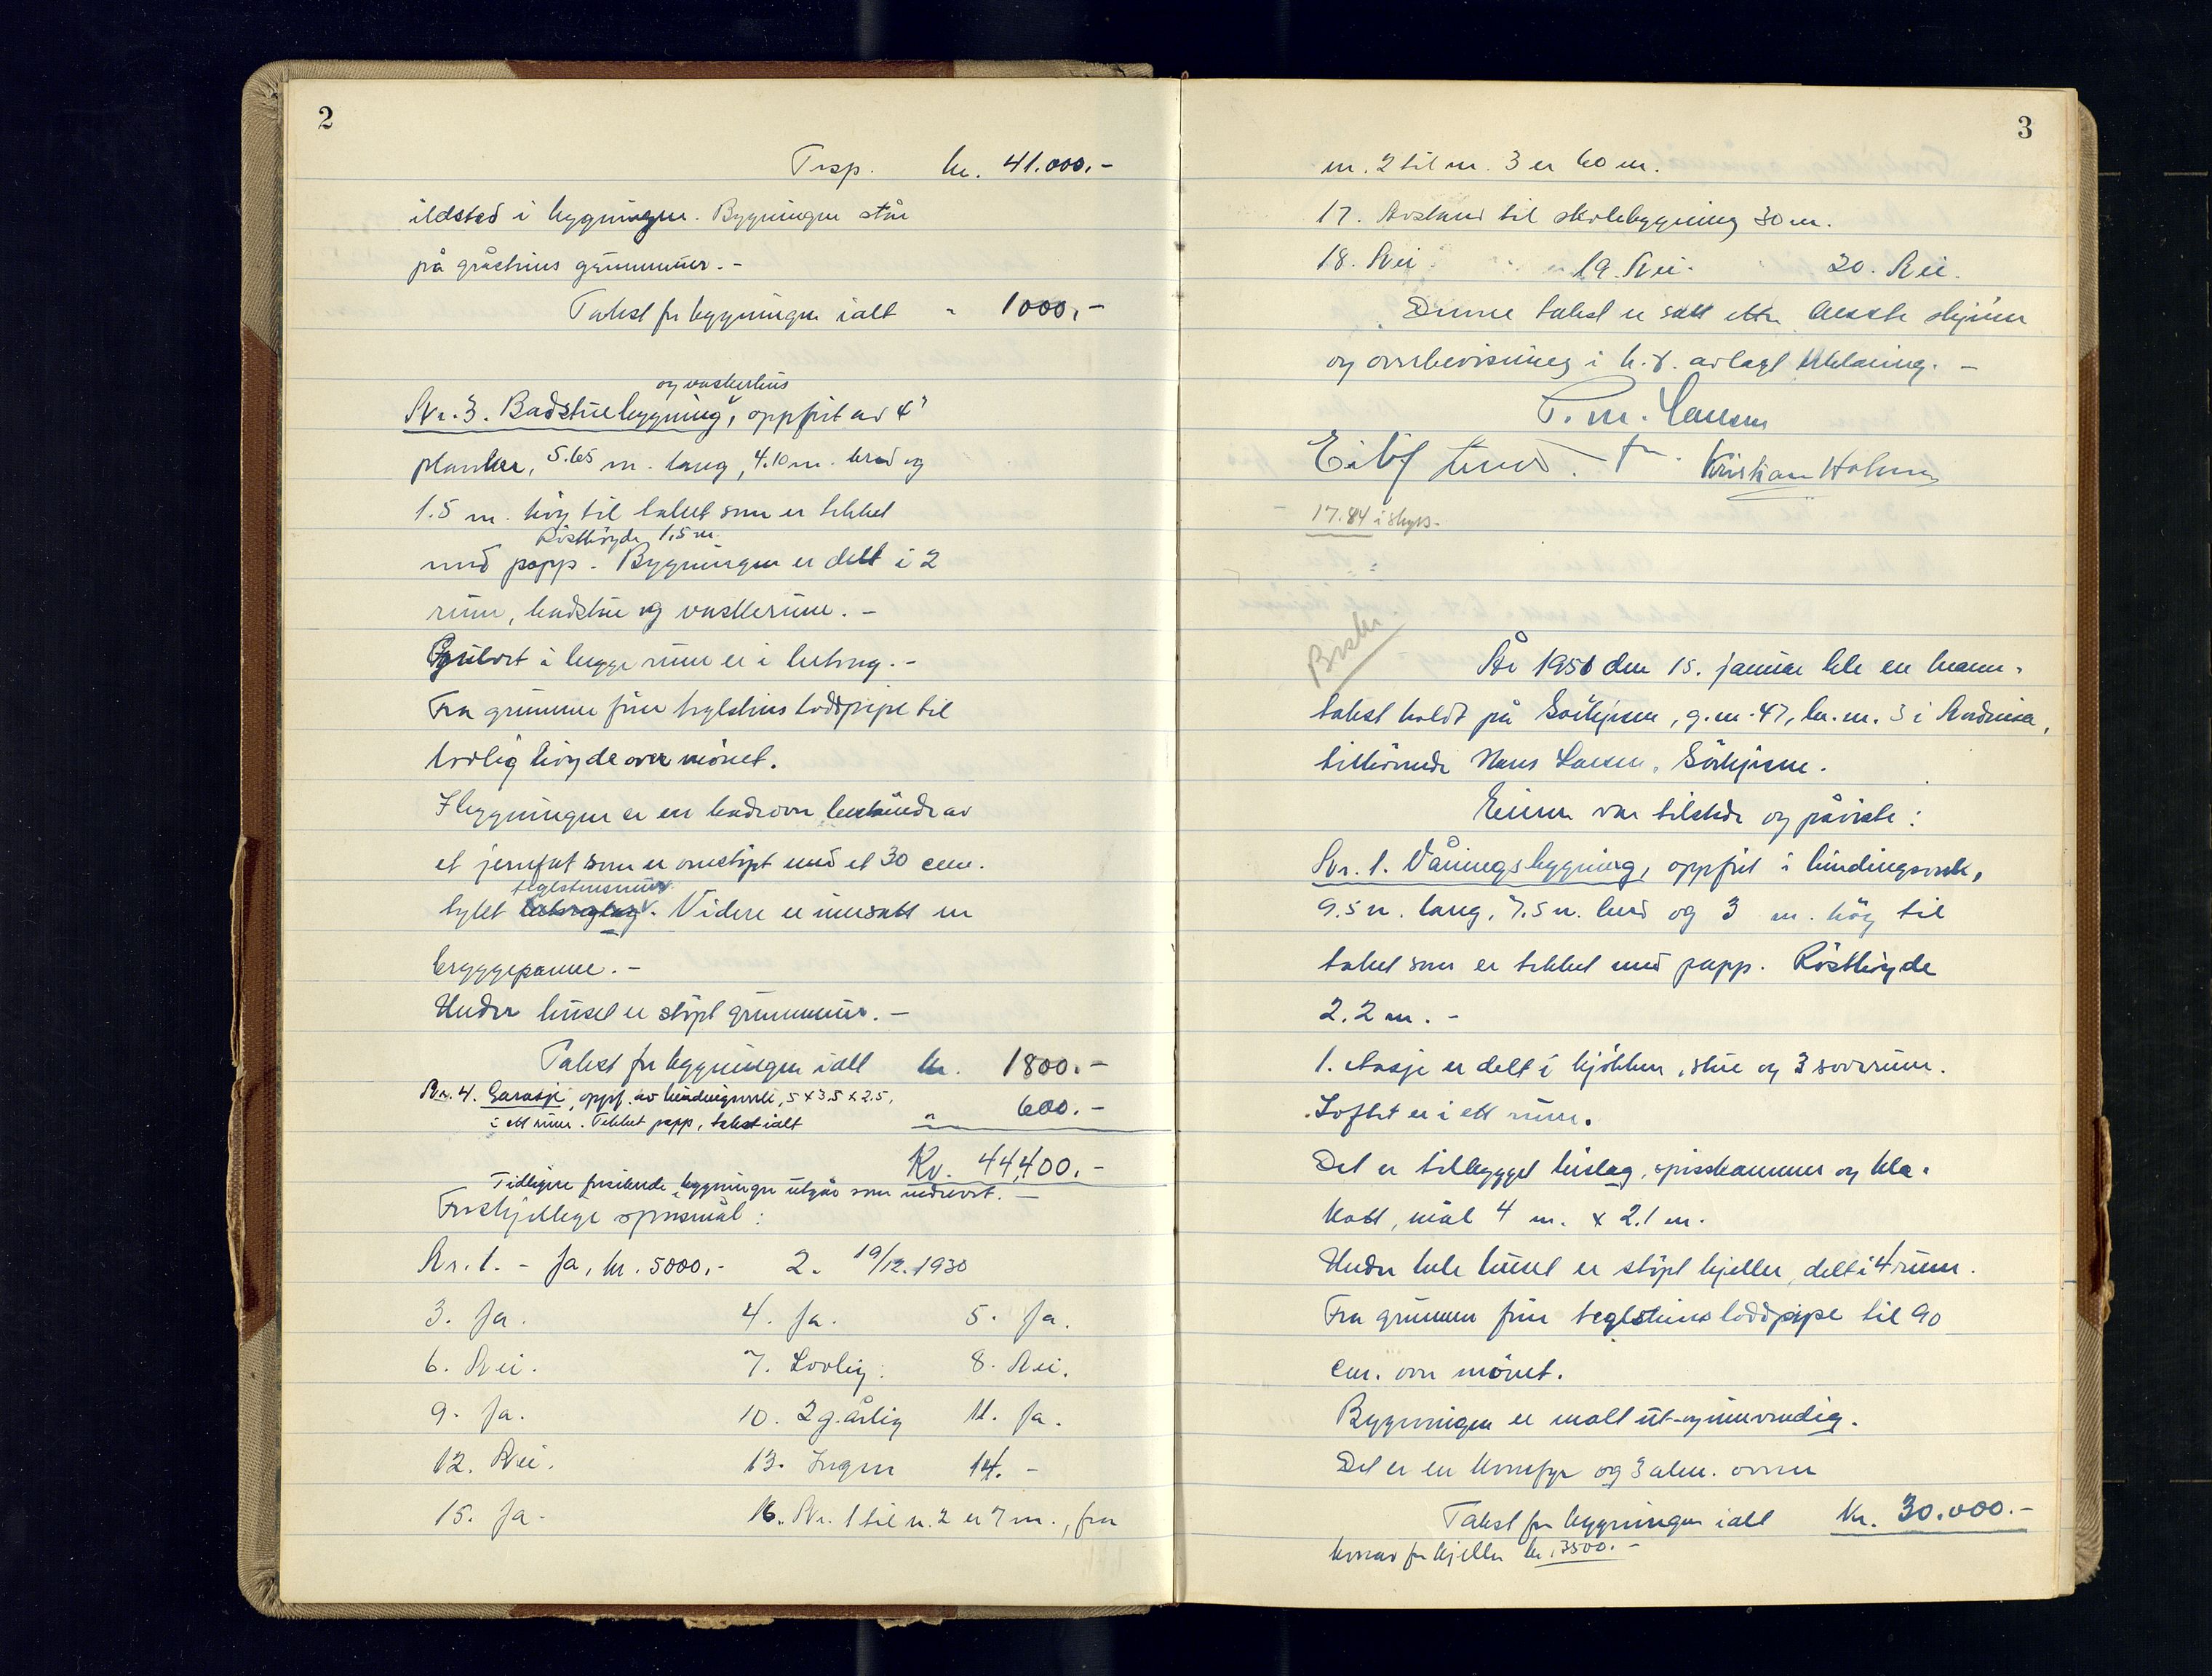 2
Trsp. kr. 41.000,-
ildsted i bygningen. Bygningen står
på gråstens grunnmur.-
Takst for bygningen ialt " 1000,-
og vaskerhus
Nr. 3. Badstuebygning, oppført av 4"
planker, 5.65 m. lang, 4.10 m. bred og
1.5 m. høy til taket som er tekket
Rösthöyde 1,5 m.
med papp. Bygningen er delt i 2
rum, badstue og vaskerum.-
Gulvet i begge rum er i betong.-
Fra grunnenförer teglstens loddpipe til
lovlig höyde over mönet.
I bygningen er en badeovn bestående av
et jernfat som er omstöpt med et 30 cm.
teglstensmur
tykt. Videre er innsatt en
bryggepanne.-
Under huset er stöpt grunnmur.-
Takst for bygningen ialt kr. 1800.-
Nr. 4. Garasje, oppf. av bindingsverk, 5 x 3.5 x 2.5,
i ett rum. Tekket papp, takst ialt " 600.-
Kr. 44,400.-
Tidligere forsikrede bygninger utgår som nedrevet.-
Forskjellige spørsmål:
Nr. 1. - Ja, kr. 5000,- 2. 19/12. 1930
3. Ja. 4. Ja. 5. Ja.
6. Nei. 7. Lovlig. 8. Nei.
9. Ja. 10. 2 g. årlig 11. Ja.
12. Nei. 13. Ingen 14. -
15. Ja. 16. Nr. 1 til nr. 2 er 7 m., fra
3
nr. 2 til nr. 3 er 60 m.
17. Avstand til skolebygning 30 m.
18. Nei. 19. Nei. 20. Nei.
Denne takst er satt etter beste skjönn
og overbevisning i h.t. avlagt erklæring.-
P. M. Larsen
Eilif Lund. Kristian Holmen
17.84 i skyss.
År 1951 den 15. januar ble en brann-
takst holdt på Sörkjosen, g.nr. 47, br.nr. 3 i Nordreisa,
tilhörende Hans Larsen, Sörkjosen.
Eieren var tilstede og påviste:
Nr. 1. Våningsbygning, oppfört i bindingsverk,
9.5 m. lang, 7.5 m. bred og 3 m. höy til
taket som er tekket med papp. Rösthöyde
2.2 m.-
1. etasje er delt i kjökken, stue og 3 soverum.
Loftet er i ett rum.
Det er tilbygget bislag, spisskammer og klo-
sett, mål 4 m. x 2.1 m.
Under hele huset er stöpt kjeller, delt i 4 rum.
Fra grunnen förer teglstens loddpipe til 90
cm. over mönet.
Bygningen er malt ut- og innvendig.
Det er en komfyr og 3 alm. ovner
Takst for bygningen ialt Kr. 30.000.-
hvorav for kjeller kr. 3500.-